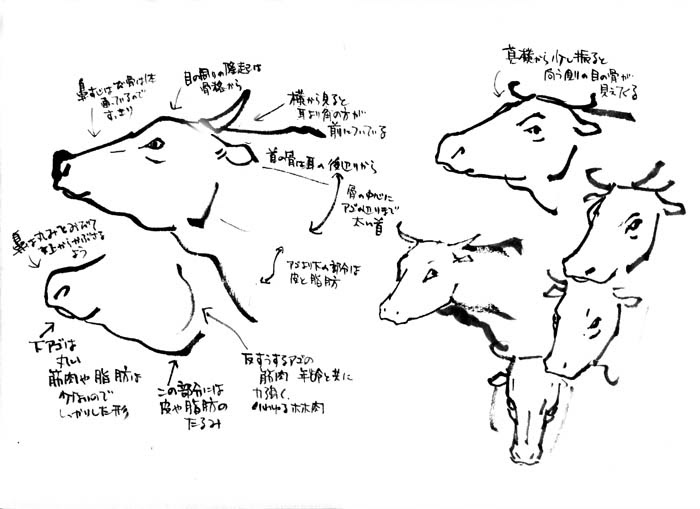 鼻すじは
すっきり
目の周りの隆起は
骨格から
横から見ると
耳より角の方が
前についている
首の骨は耳の後辺りから
骨の中心に
アゴの辺りまで
太い首
アゴより下の部分は
皮と脂肪
鼻は丸みをおびて
上からかぶさる
よう
下アゴは
丸い
筋肉や脂肪は
少ないので
しっかりした形
この部分には
皮や脂肪の
たるみ
反すうするアゴの
筋肉 年齢と共に
力強く、
いわゆるホホ肉
真横から少し振ると
向う側の目の骨が
見えてくる